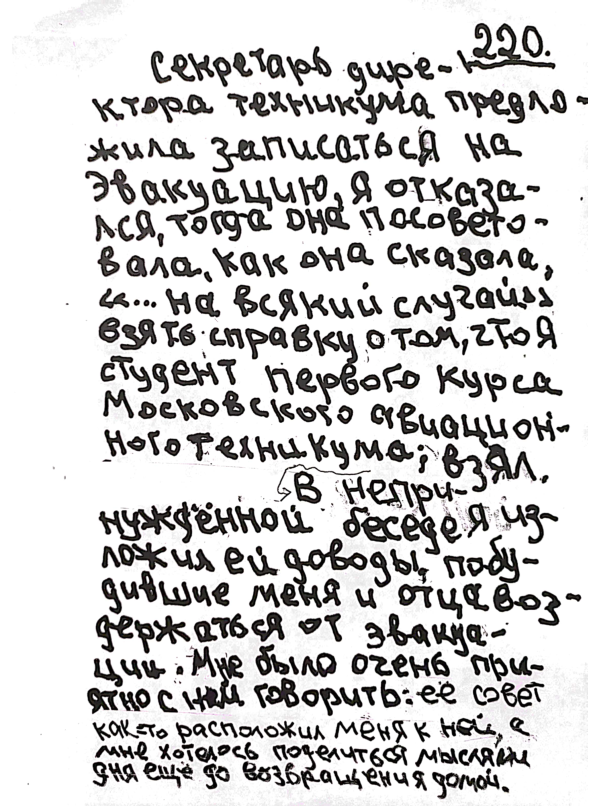 220.
Секретарь дире-
ктора техникума предло-
жила записаться на
эвакуацию, я отказа-
лся, тогда она посовето-
вала, как она сказала,
«... на всякий случай»
взять справку о том, что я
студент первого курса
Московского авиацион-
ного техникума; взял.
В непри-
нуждённой беседе я из-
ложил ей доводы, побу-
дившие меня и отца воз-
держаться от эвакуа-
ции. Мне было очень при-
ятно с ней говорить: её совет
как-то расположил меня к ней, а
мне хотелось поделиться мыслями
дня ещё до возвращения домой.